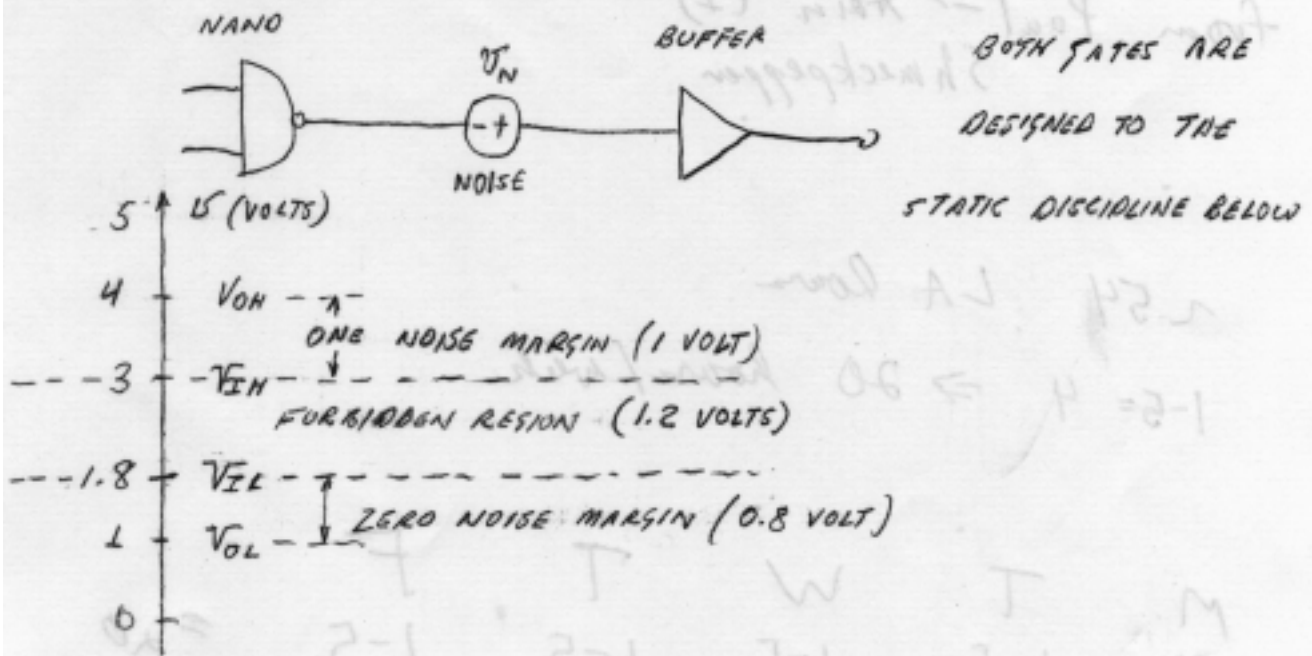 NAND
BUFFER
BOTH GATES ARE
DESIGNED TO THE
STATIC DISCIPLINE BELOW
v_N
- +
NOISE
5 v (VOLTS)
4 V_OH
ONE NOISE MARGIN (1 VOLT)
3 V_IH
FORBIDDEN REGION (1.2 VOLTS)
1.8 V_IL
ZERO NOISE MARGIN (0.8 VOLT)
1 V_OL
0